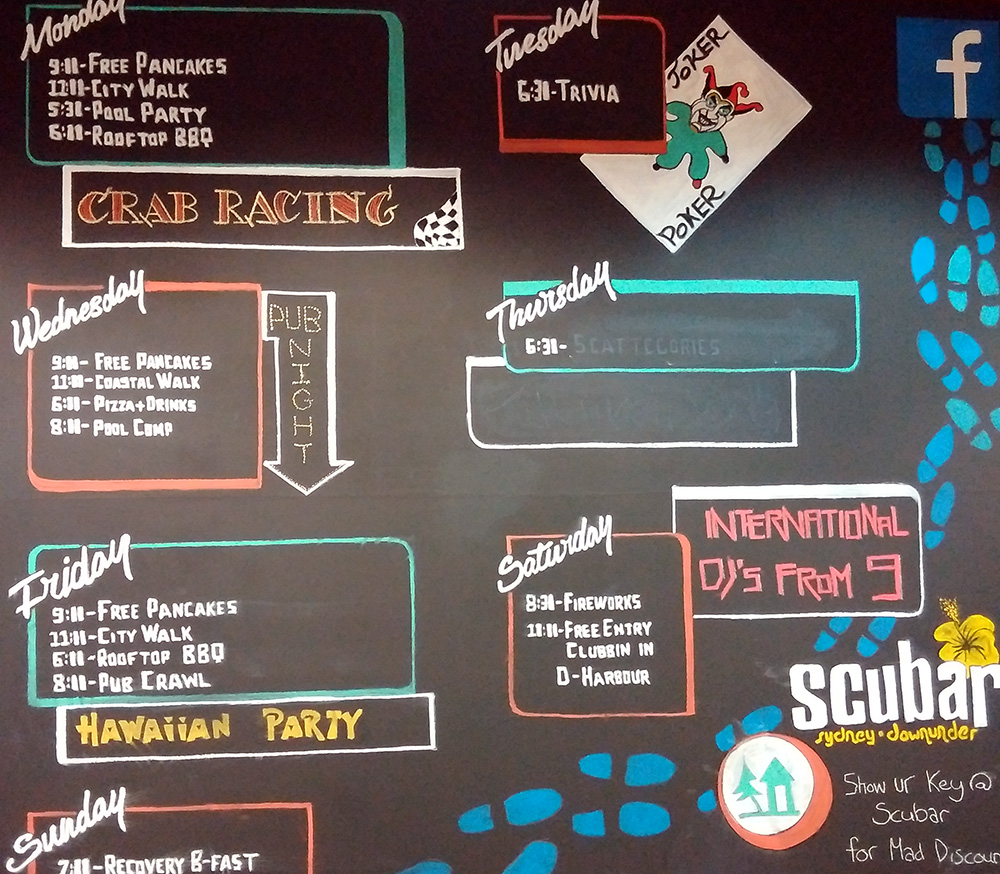 Monday
9:00-FREE PANCAKES
11:00-CITY WALK
5:30-POOL PARTY
6:00-ROOFTOP BBQ
CRAB RACING
Tuesday
6:30-TRIVIA
JOKER
POKER
f
Wednesday
9:00- FREE PANCAKES
11:00-COASTAL WALK
6:00-PIZZA+DRINKS
8:00-POOL COMP
PUB
NIGHT
Thursday
6:30- SCATTEGORIES
Friday
9:00-FREE PANCAKES
11:00-CITY WALK
6:00-ROOFTOP BBQ
8:00-PUB CRAWL
HAWAiiAN PARTY
Saturday
8:30-FIREWORKS
11:00-FREE ENTRY
CLUBBIN IN
D-HARBOUR
INTERNATIONAL
DJ'S FROM 9
scubar
sydney·downunder
Show ur Key @
Scubar
for Mad Discoun
Sunday
7:00-RECOVERY B-FAST